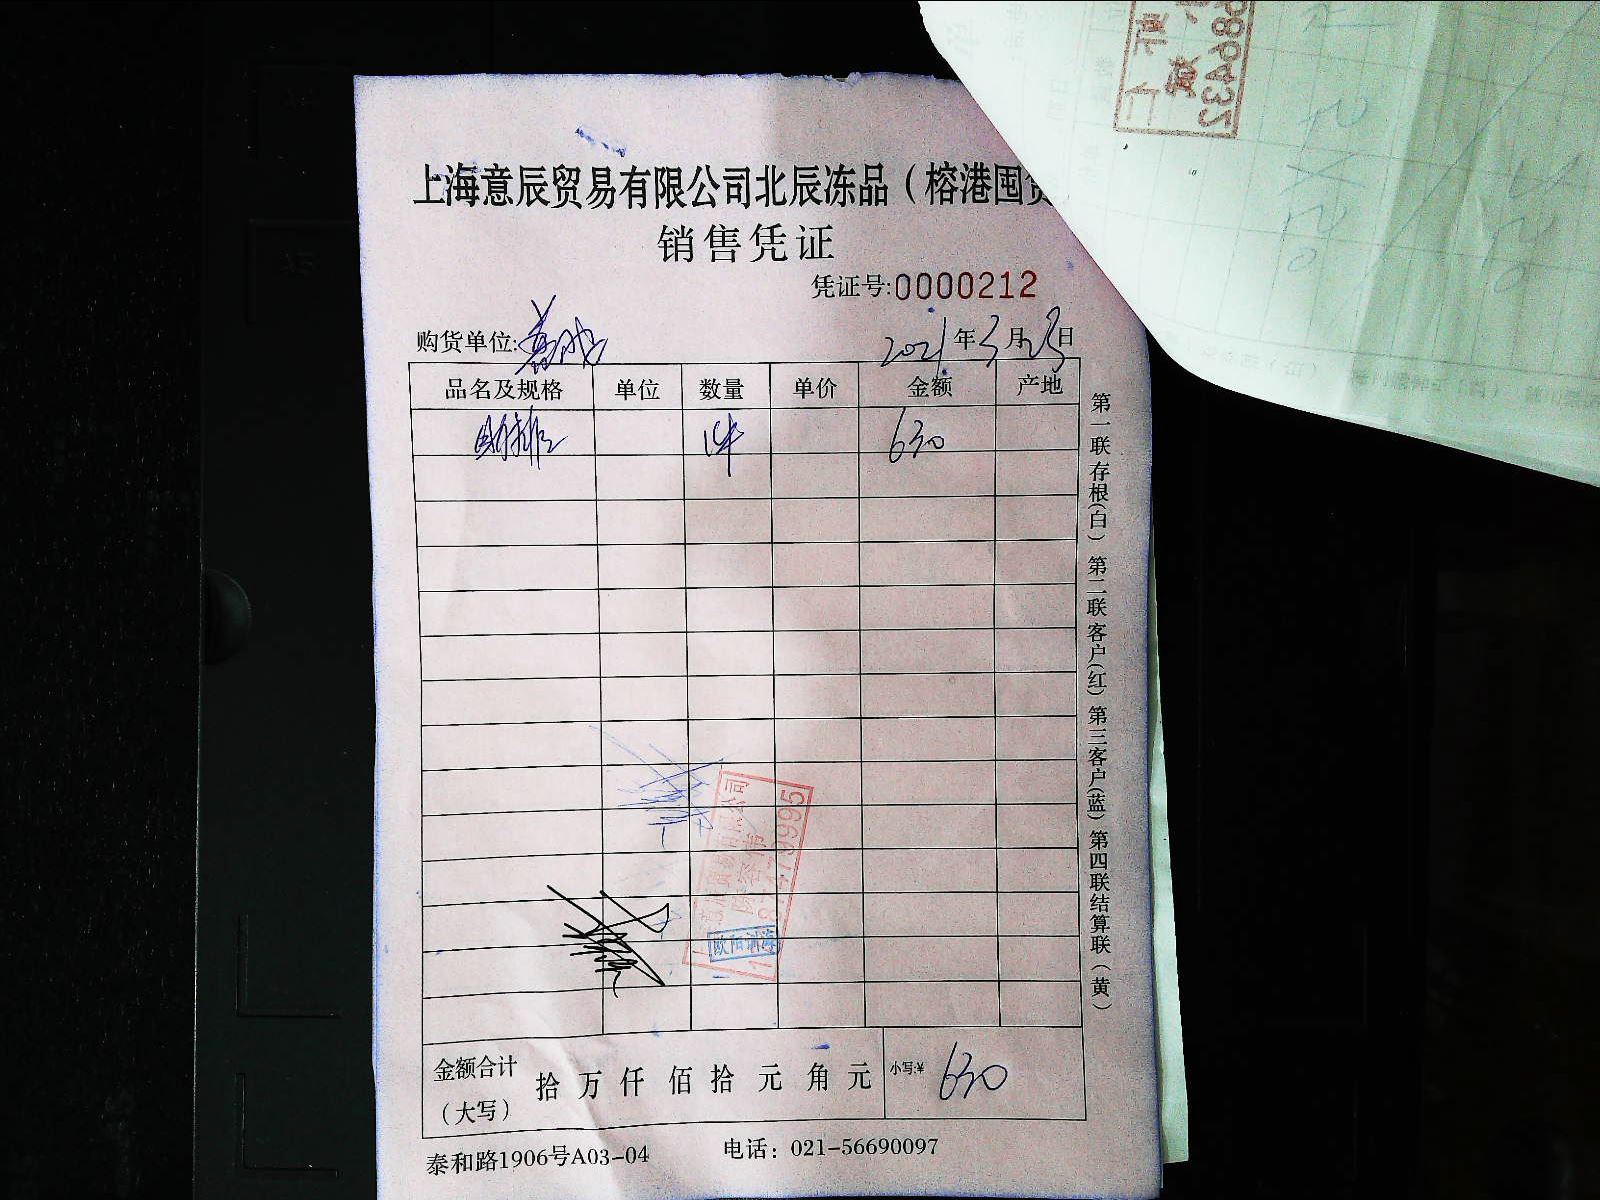 上海意辰贸易有限公司北辰冻品（榕港囤货
销售凭证
凭证号:0000212
购货单位:
2021年3月23日
品名及规格 单位 数量 单价 金额 产地
1件 630
第一联存根(白) 第二联客户(红) 第三客户(蓝) 第四联结算联(黄)
欧阳
金额合计（大写） 拾 万 仟 佰 拾 元 角 元 小写:¥ 630
泰和路1906号A03-04 电话：021-56690097